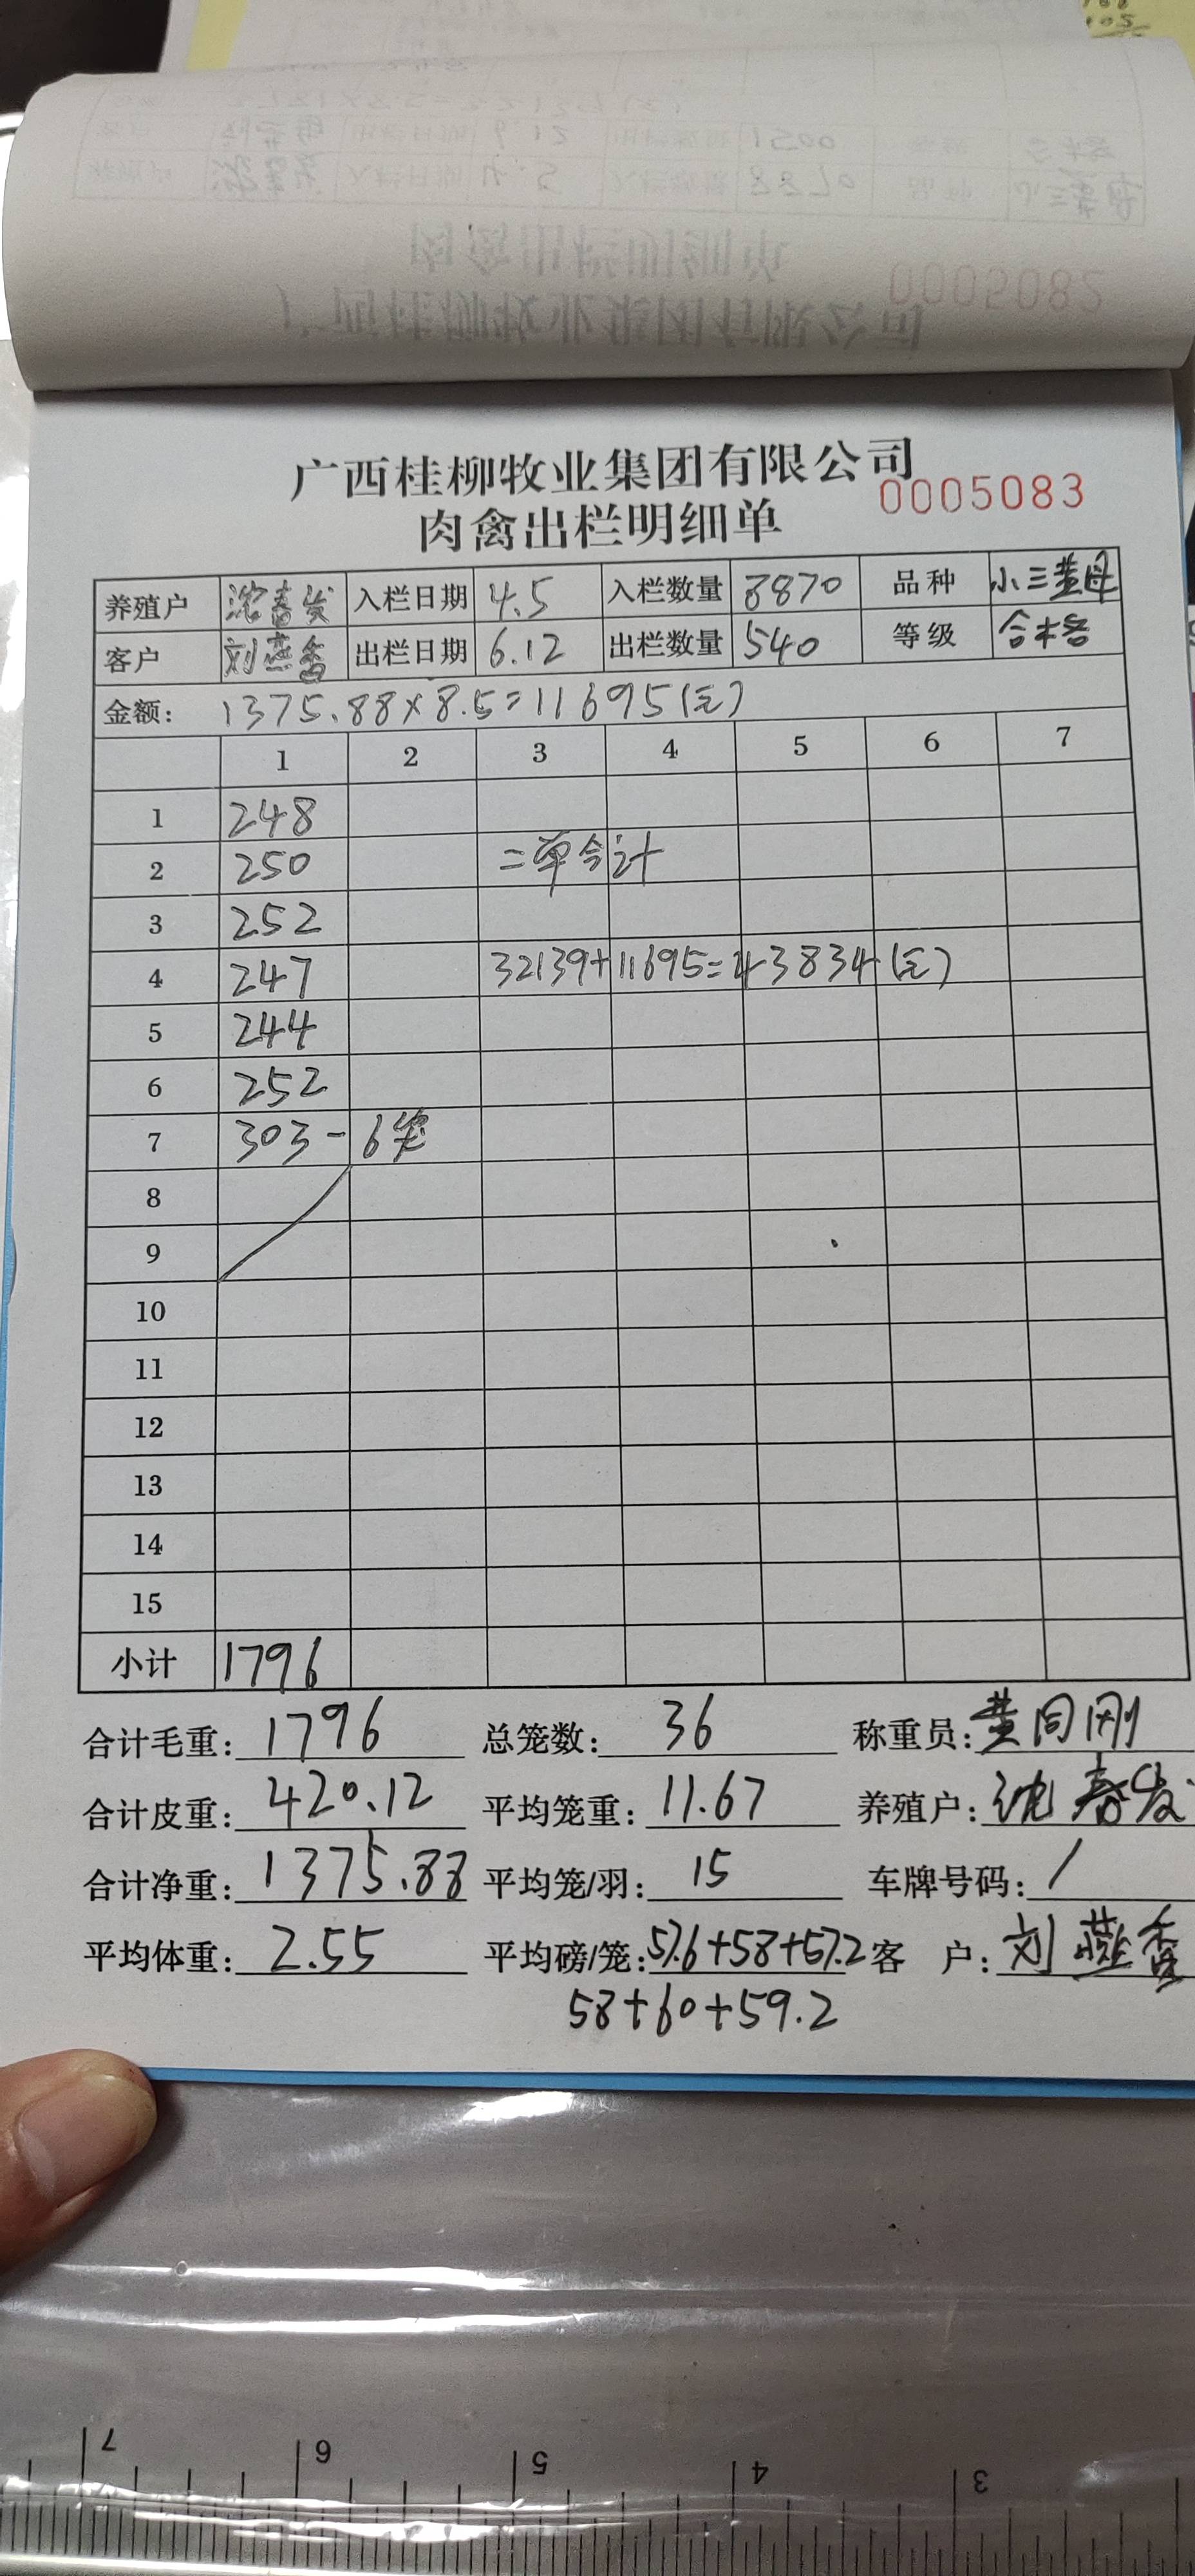 0005082
广西桂柳牧业集团有限公司
0005083
肉禽出栏明细单
养殖户 沈春发 入栏日期 4.5 入栏数量 8870 品种 小三黄母
客户 刘燕香 出栏日期 6.12 出栏数量 540 等级 合格
金额: 1375.88×8.5=11695(元)
1 2 3 4 5 6 7
1 248
2 250 二单合计
3 252
4 247 32139+11695=43834(元)
5 244
6 252
7 303-6笼
8
9
10
11
12
13
14
15
小计 1796
合计毛重: 1796 总笼数: 36 称重员: 黄同刚
合计皮重: 420.12 平均笼重: 11.67 养殖户: 沈春发
合计净重: 1375.88 平均笼/羽: 15 车牌号码: /
平均体重: 2.55 平均磅/笼: 57.6+58+57.2 客 户: 刘燕香
58+60+59.2
7 6 5 4 3